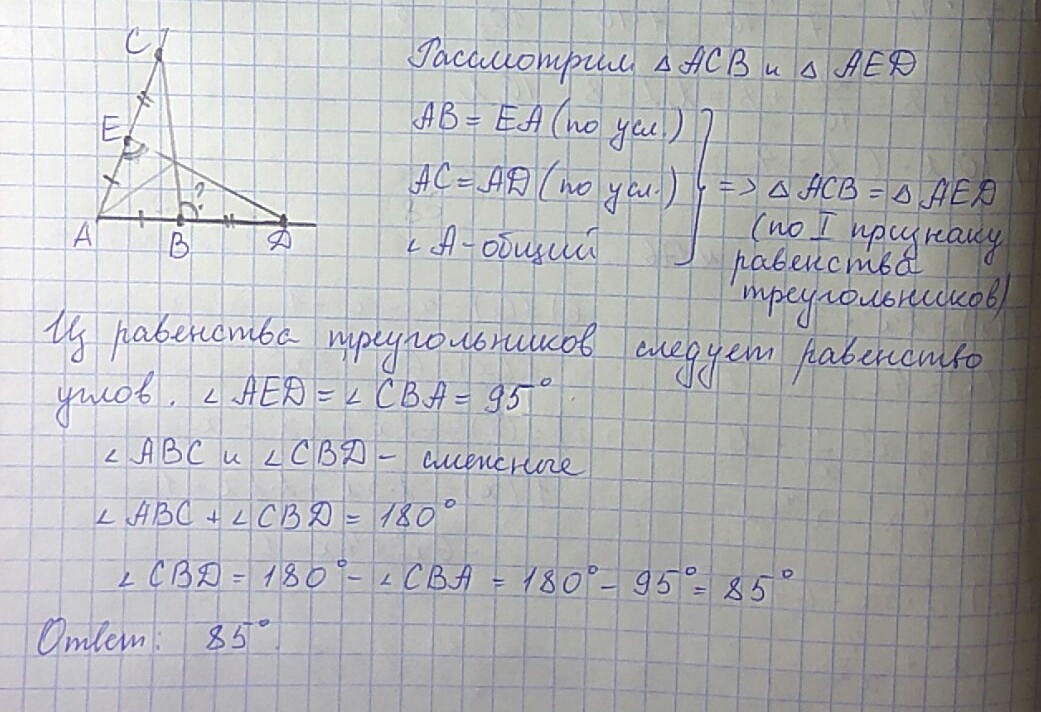 C
E
A
B
D
?
Рассмотрим △ ACB и △ AED
AB = EA (по усл.)
AC = AD (по усл.) => △ ACB = △ AED
∠ A - общий
(по I признаку
равенства
треугольников)
Из равенства треугольников следует равенство
углов. ∠ AED = ∠ CBA = 95°
∠ ABC и ∠ CBD - смежные
∠ ABC + ∠ CBD = 180°
∠ CBD = 180° - ∠ CBA = 180° - 95° = 85°
Ответ: 85°